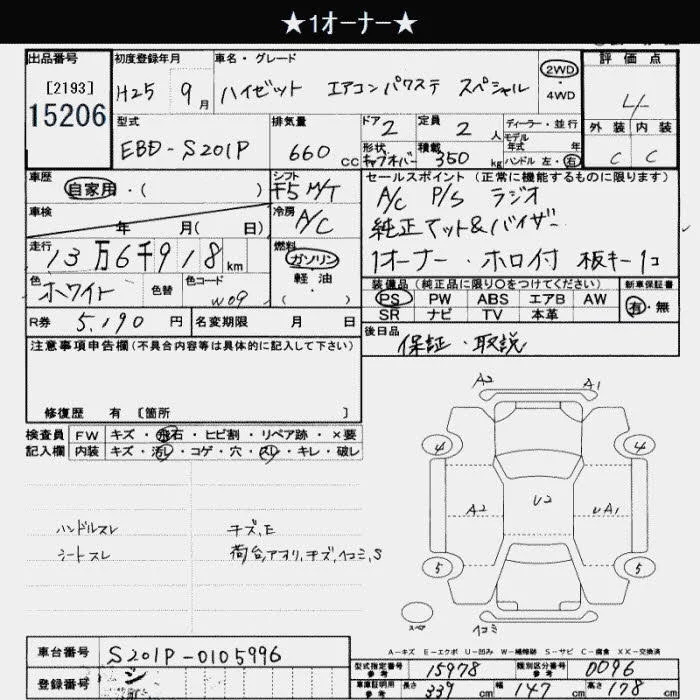 ★1オーナー★
出品番号
[2193]
15206
初度登録年月
H25 9月
車名・グレード
ハイゼット エアコン パワステ スペシャル
2WD
・
4WD
評価点
4
外装 内装
C C
型式
EBD-S201P
排気量
660 CC
ドア
2
定員
2 人
形状
キャブオーバー
積載
350 kg
ディーラー・並行
モデル
年式 年
ハンドル 左・右
車歴
自家用・( )
シフト
F5 M/T
車検
年 月( 日)
冷房
A/C
走行
13万6千918km
燃料
ガソリン
軽油
( )
色
ホワイト
色替
色コード
W09
R券
5,190 円
名変期限 月 日
セールスポイント (正常に機能するものに限ります)
A/C P/S ラジオ
純正マット&バイザー
1オーナー・ホロ付 板キー1コ
装備品(純正品に限り○をつけてください)
PS PW ABS エアB AW
SR ナビ TV 本革
新車保証書
有・無
後日品
保証・取説
注意事項申告欄(不具合内容等は具体的に記入して下さい)
修復歴 有 〔箇所 〕
検査員
記入欄
FW キズ・飛石・ヒビ割・リペア跡・×要
内装 キズ・汚レ・コゲ・穴・スレ・キレ・破レ
ハンドルスレ
シートスレ
キズ,E
荷台,アオリ,キズ,ヘコミ,S
A2 A1
4 4
A2 U2 UA1
5 5
スペア
ヘコミ
A-キズ E-エクボ U-凹み W-補修跡 S-サビ C-腐食 XX-交換済
車台番号
S201P-0105996
登録番号
型式指定番号
参考
15978
類別区分番号
参考
0096
車庫証明用
参考
長さ 339 cm
幅 147 cm
高さ 178 cm